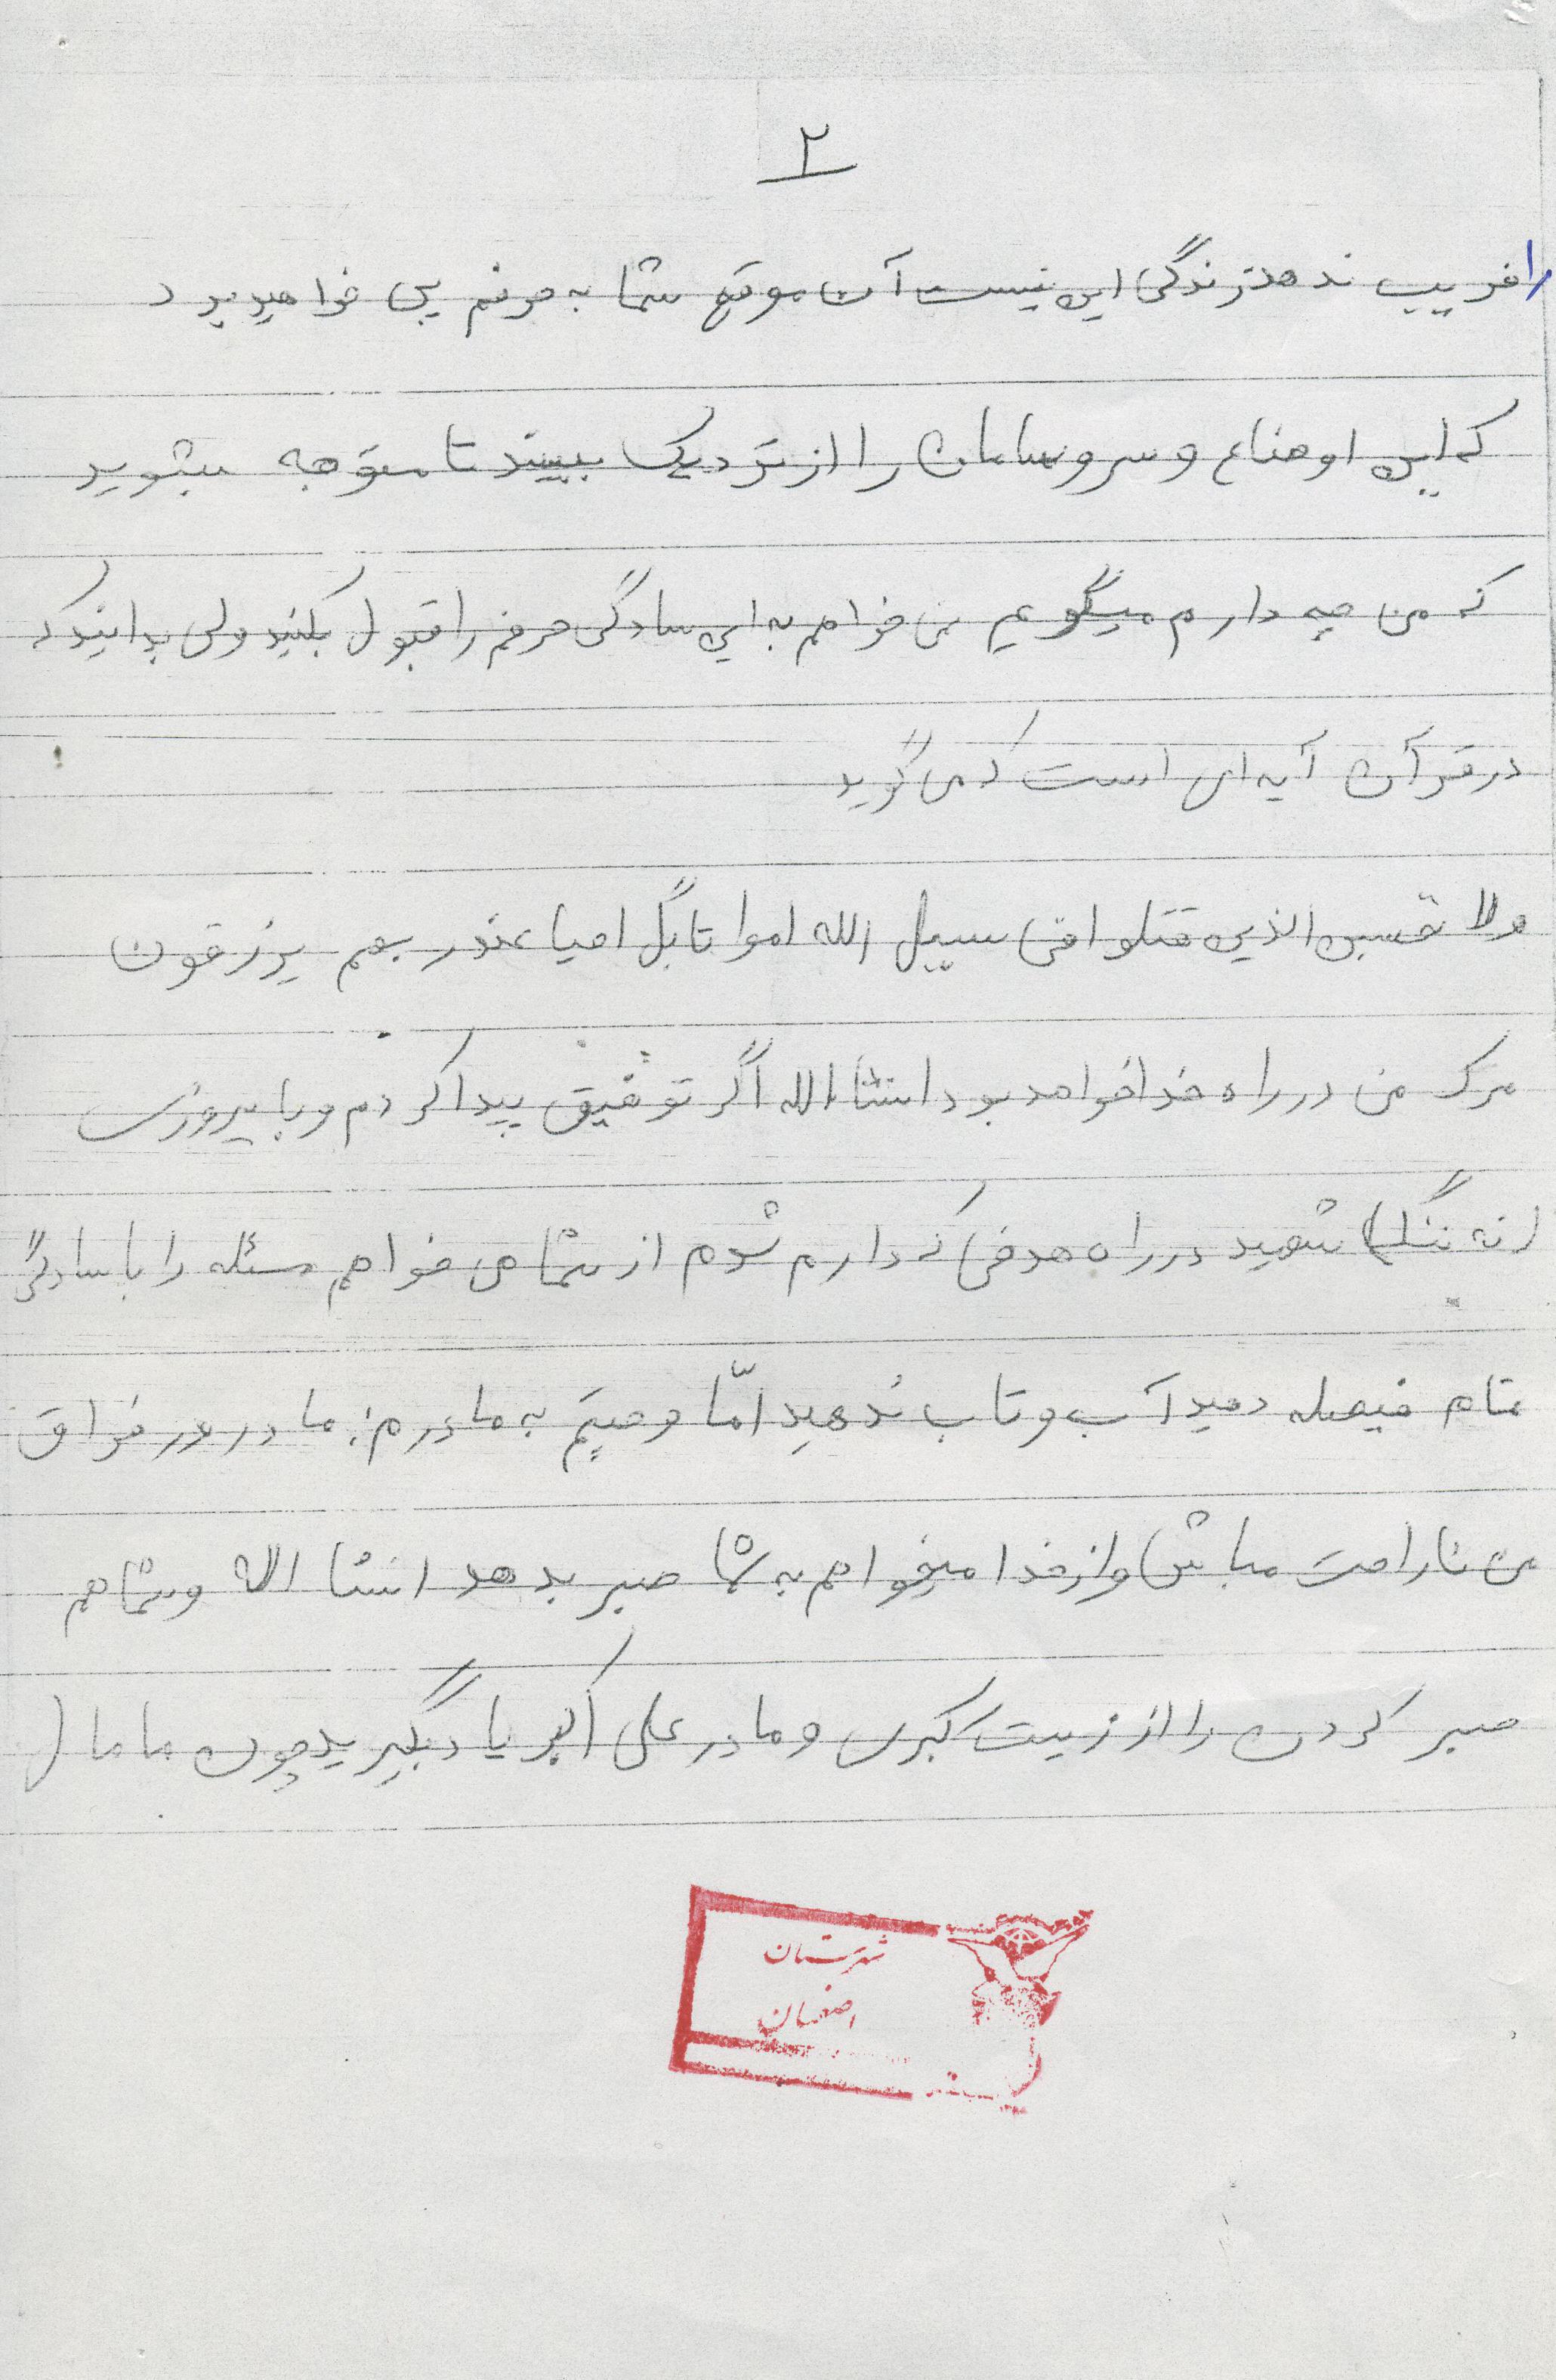 ۲
را فریب ندهد زندگی این نیست آن موقع شما به حرفم پی خواهید برد
که این اوضاع و سروسامان را از نزدیک ببینید تا متوجه بشوید
که من چه دارم میگویم نمی خواهم به این سادگی حرفم را قبول بکنید ولی بدانید که
در قرآن آیه ای است که می گوید
ولا تحسبن الذین قتلوا فی سبیل الله امواتا بل احیا عند ربهم یرزقون
مرگ من در راه خدا خواهد بود انشاالله اگر توفیق پیدا کردم و با پیروزی
(نه ننگ) شهید در راه هدفی که دارم شدم از شما می خواهم مسئله را با سادگی
تمام فیصله دهید آب و تاب ندهید امّا وصیتم به مادرم: مادر در فراق
من ناراحت مباش و از خدا میخواهم به شما صبر بدهد انشا الله و شما هم
صبر کردن را از زینب کبری و مادر علی اکبر یاد بگیرید چون ماما (
شهرستان
اصفهان